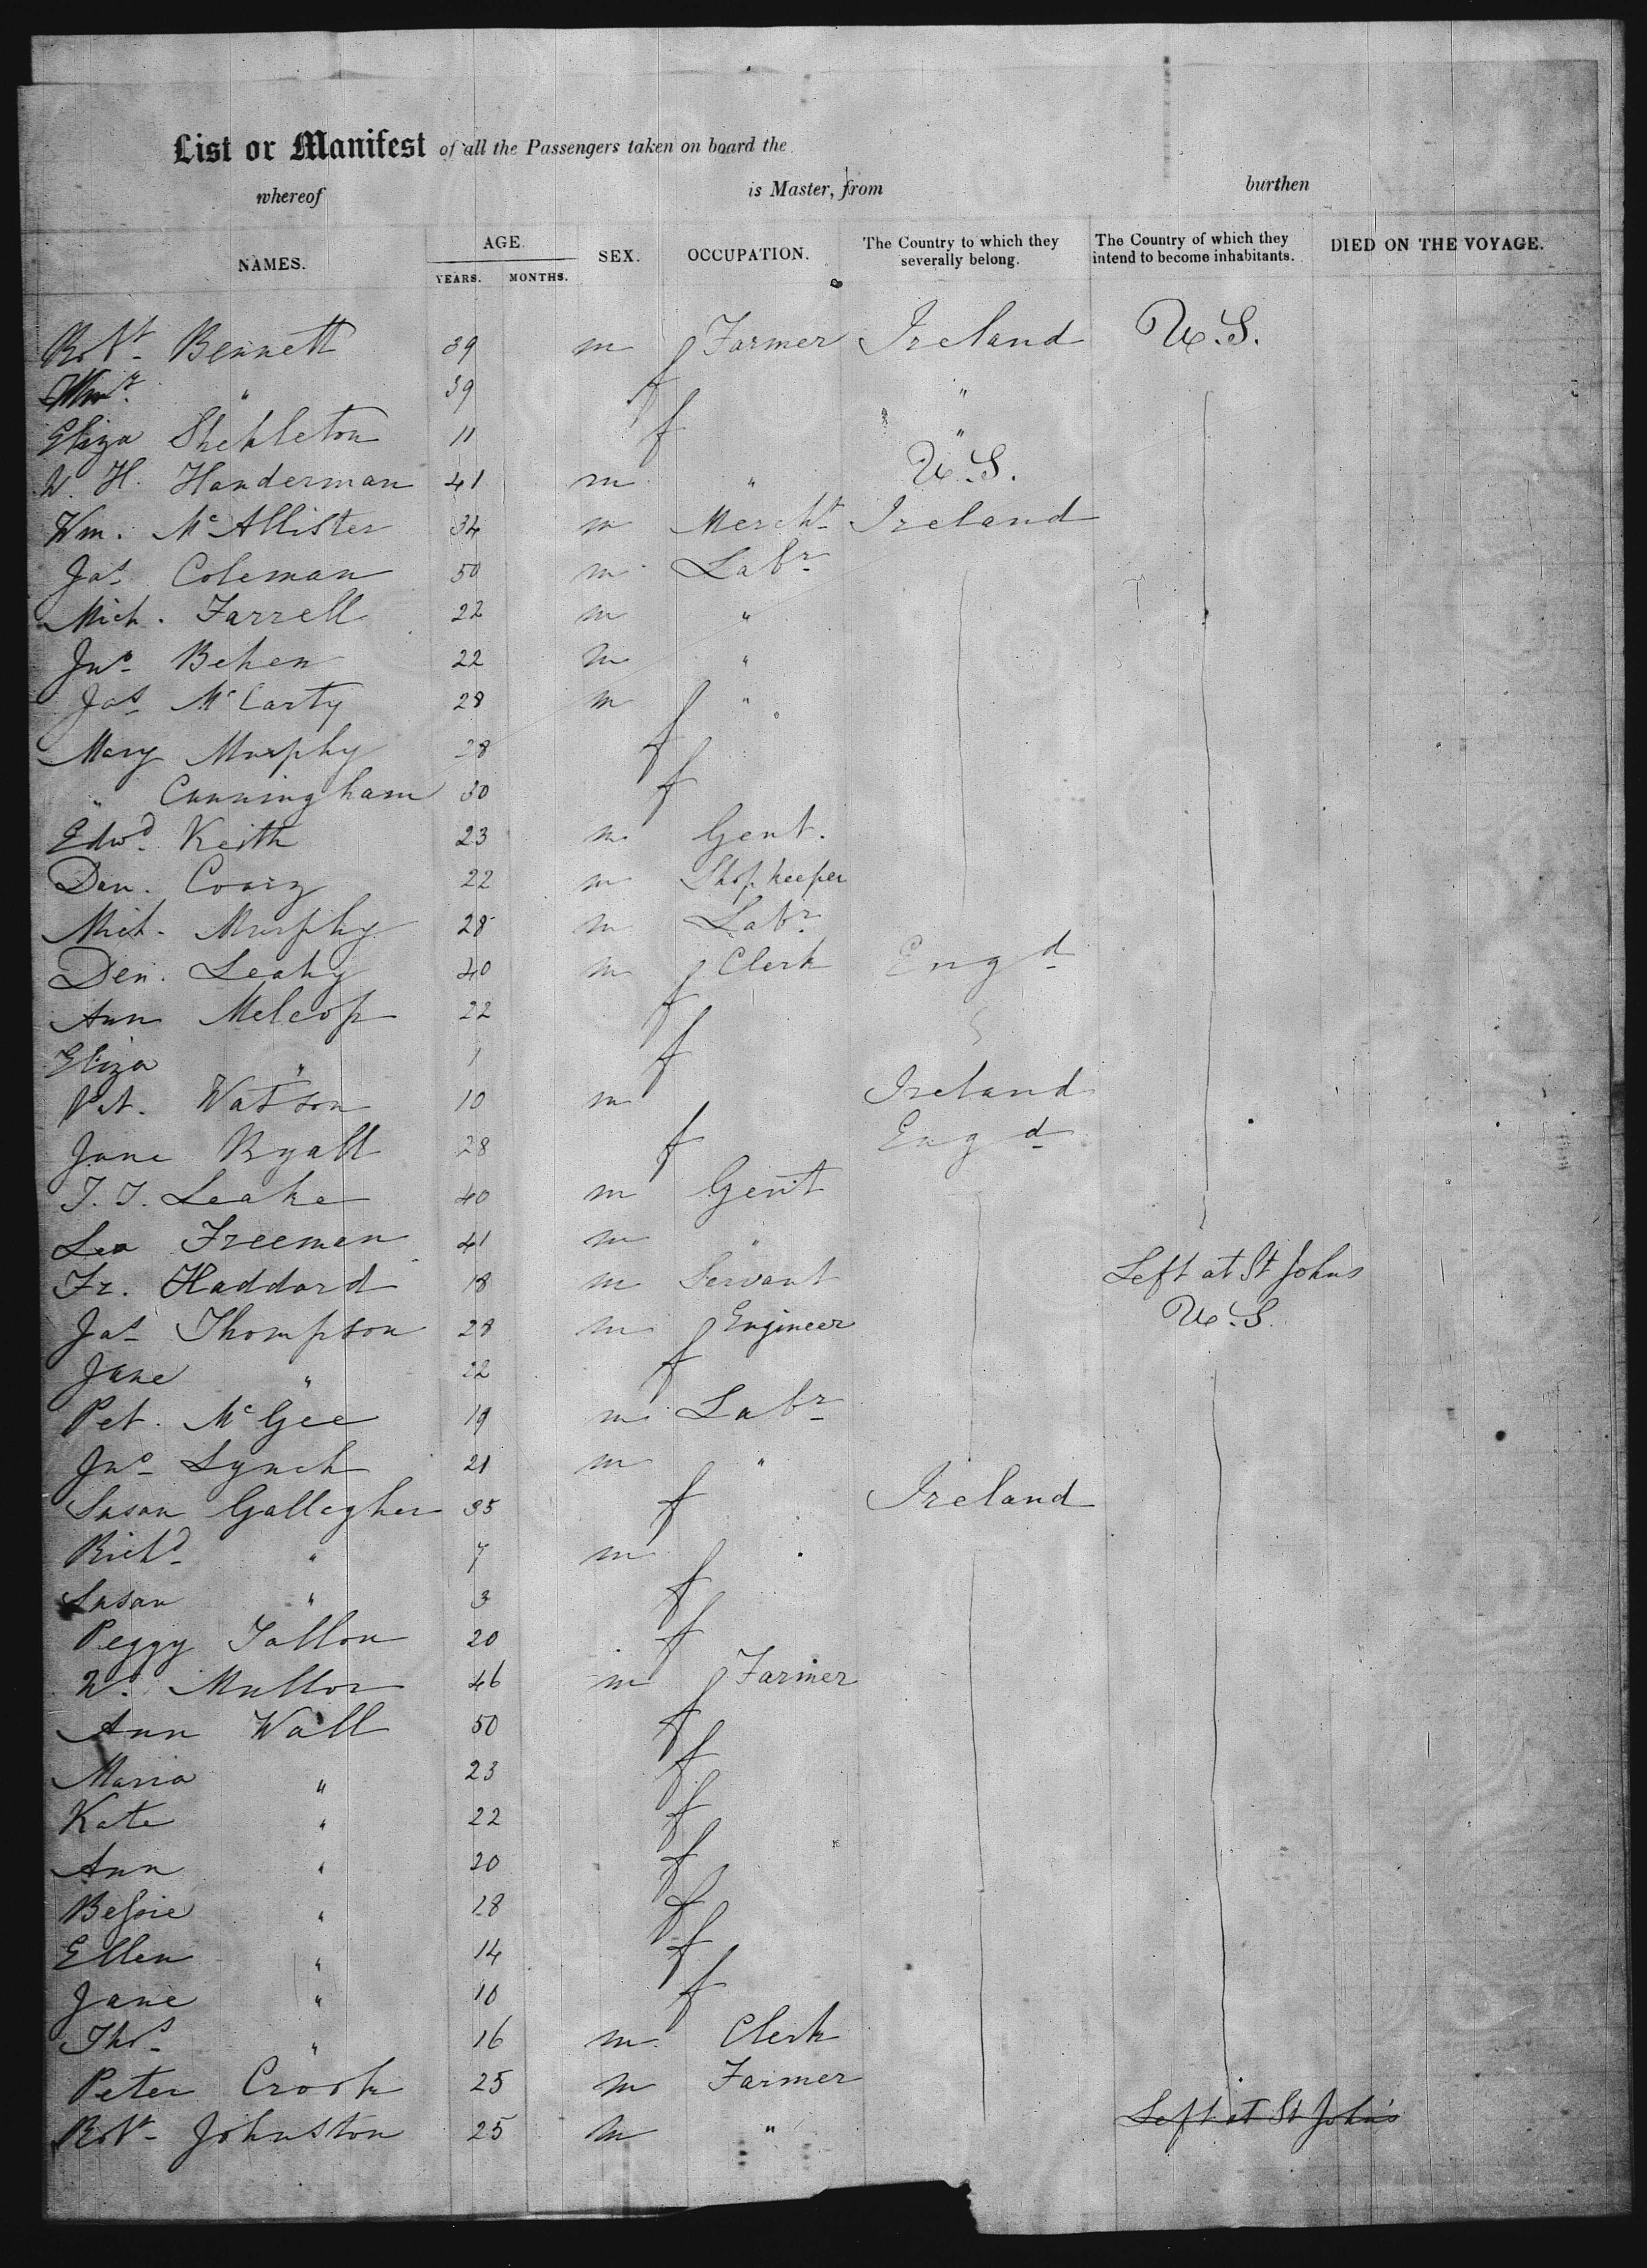 List or Manifest of all the Passengers taken on board the
whereof is Master, from burthen
NAMES. AGE. YEARS. MONTHS. SEX. OCCUPATION. The Country to which they severally belong. The Country of which they intend to become inhabitants. DIED ON THE VOYAGE.
Robt. Bennett 39 m Farmer Ireland U.S.
" 39 f "
Eliza Shekleton 11 f "
W. H. Handerman 41 m " U.S.
Wm. McAllister 34 m Mercht Ireland
Jas Coleman 50 m Labr
Mich. Farrell 22 m "
Jno Behen 22 m "
Jas McCarty 28 m "
Mary Murphy 28 f
" Cunningham 30 f
Edwd Keith 23 m Gent.
Dan. 22 m Shopkeeper
Mich. Murphy 28 m Labr
Den. Leahy 40 m Clerk Engd
Ann 22 f
Eliza " 1 f
Pat. Watson 10 m Ireland
Jane Ryall 28 f Engd
T. T. Leake 40 m Gent
Freeman 41 m "
Fr. Haddard 18 m Servant Left at St Johns
Jas Thompson 28 m Engineer U.S.
Jane " 22 f
Pet. McGee 19 m Labr
Jno Lynch 21 m "
Susan Gallegher 35 f Ireland
Richd " 7 m
Susan " 3 f
Peggy Tallon 20 f
W. Mullon 46 m Farmer
Ann Wall 50 f
Maria " 23 f
Kate " 22 f
Ann " 20 f
Bessie " 18 f
Ellen " 14 f
Jane " 10 f
Thos " 16 m Clerk
Peter Crook 25 m Farmer
Robt Johnston 25 m " Left at St John's